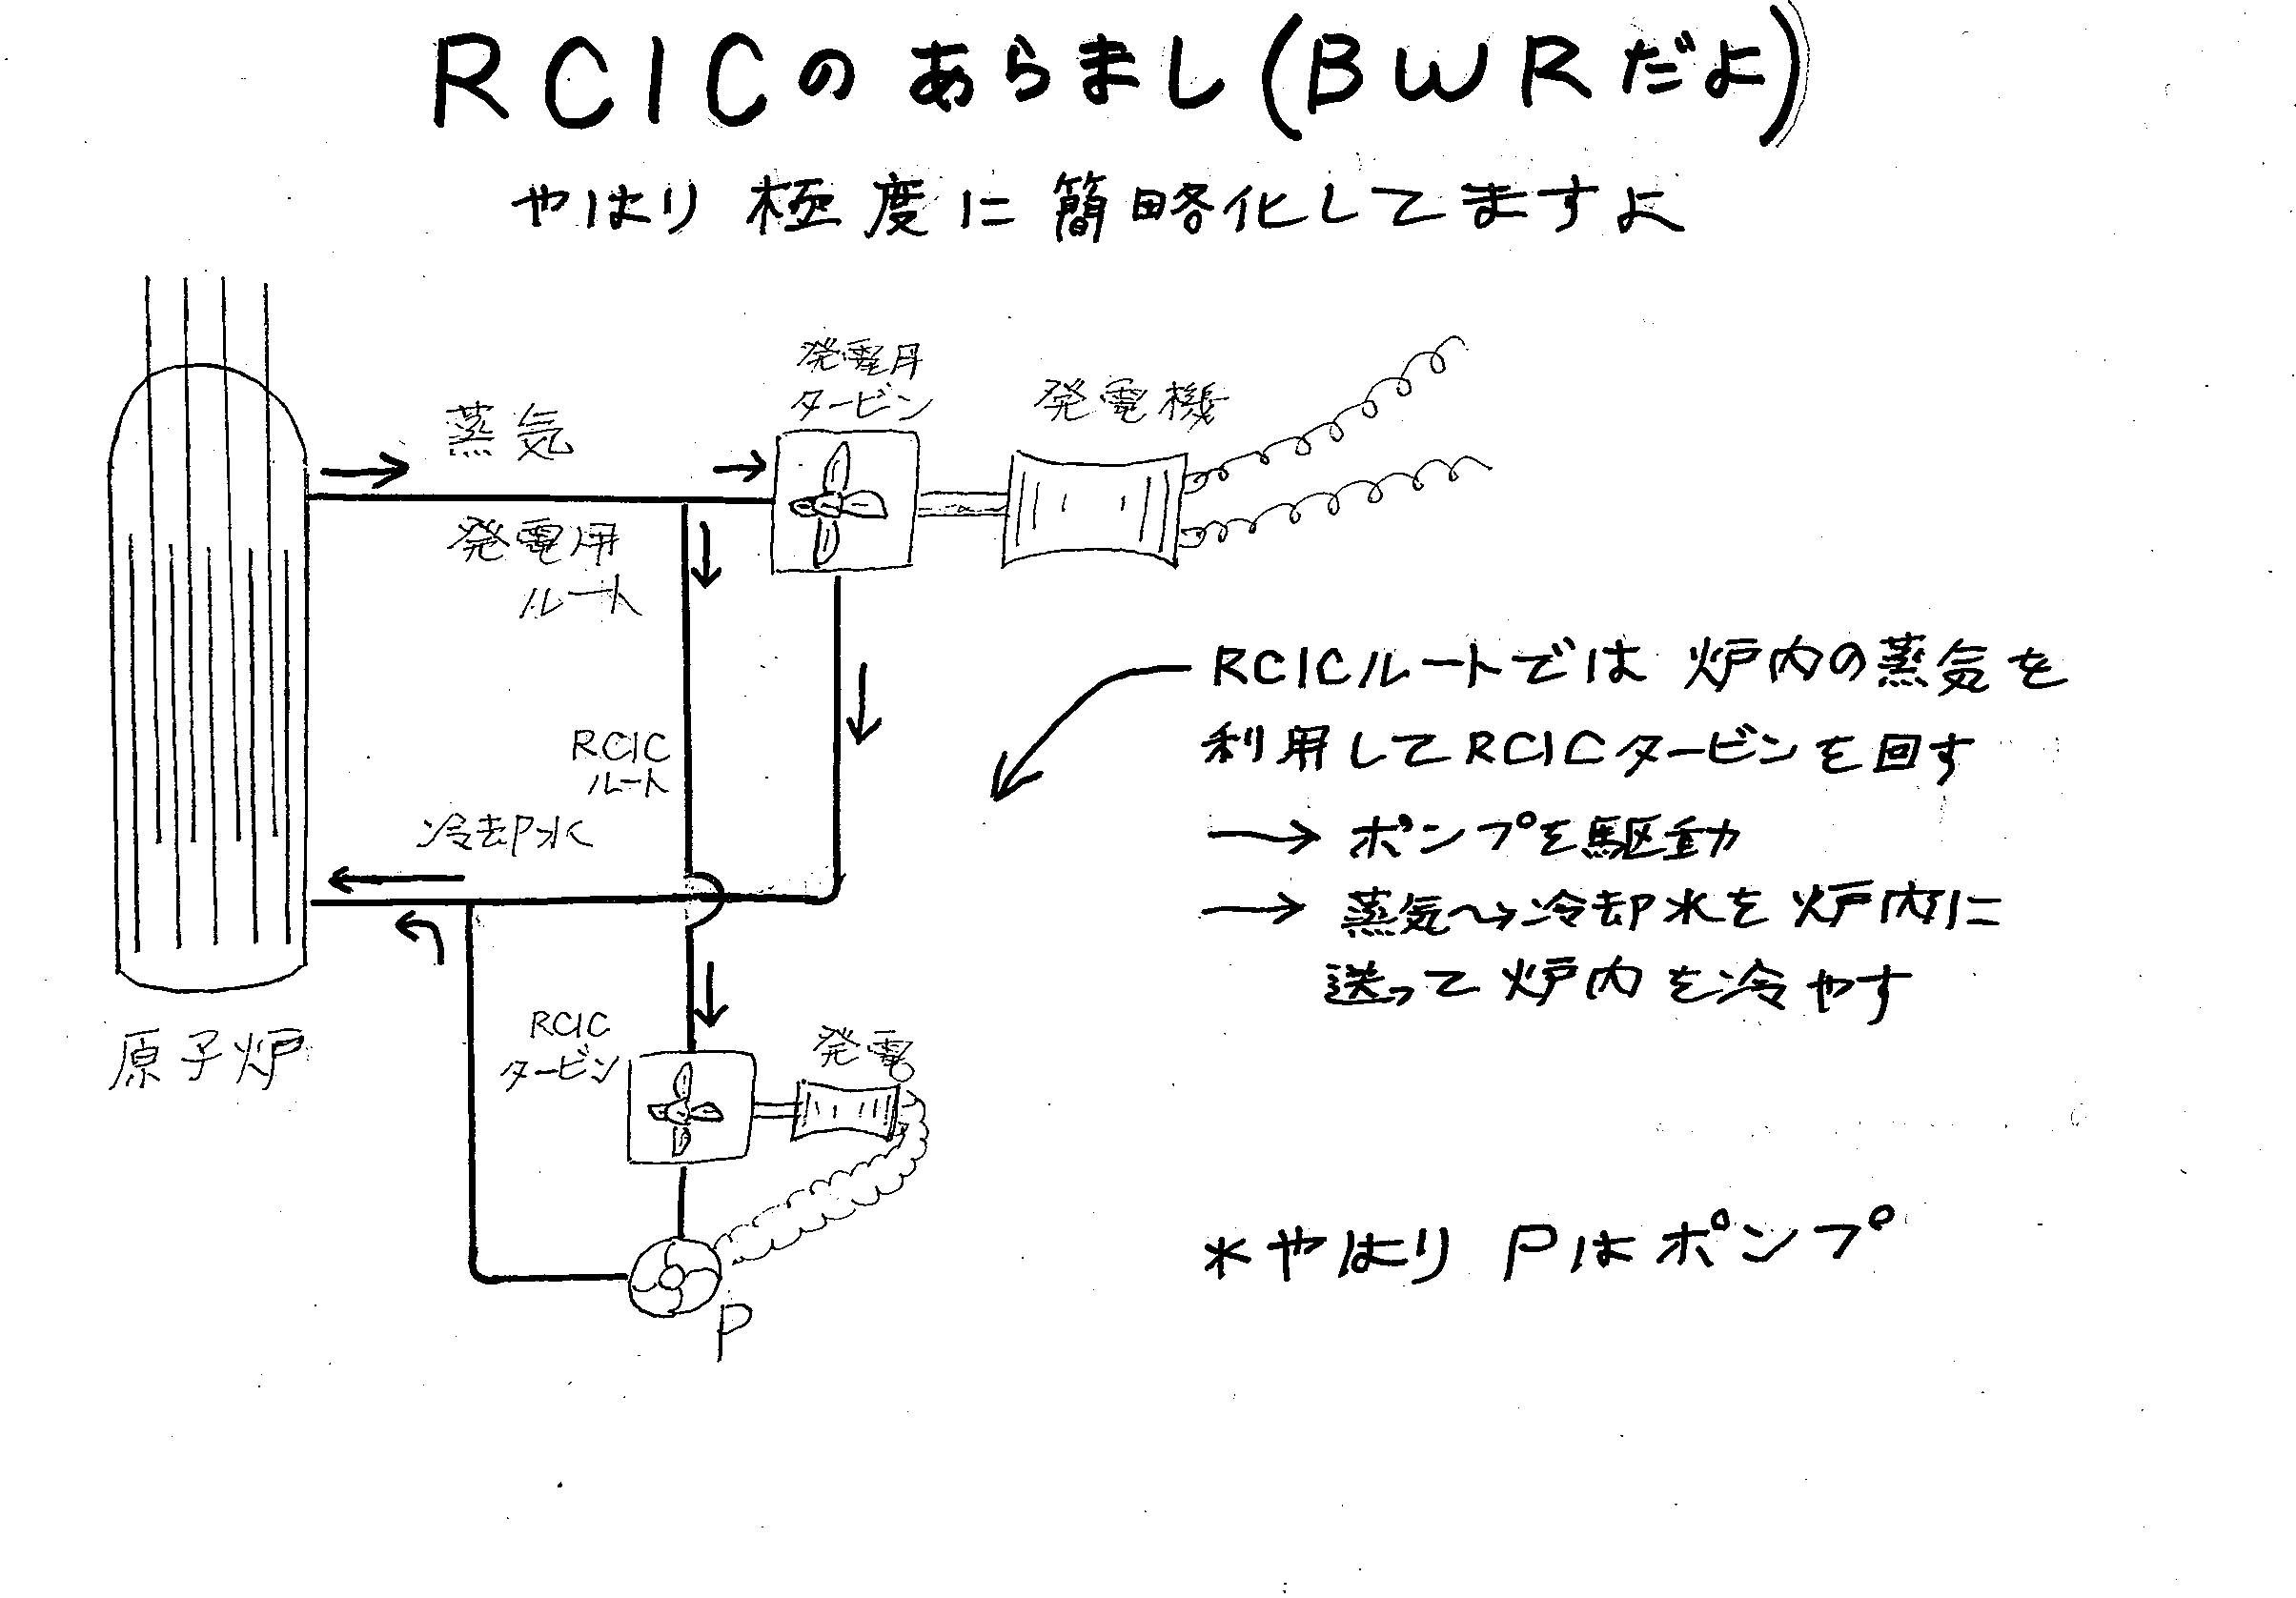 RCICのあらまし(BWRだよ)
やはり極度に簡略化してますよ
発電用
タービン
発電機
蒸気
発電用
ルート
RCICルートでは炉内の蒸気を
利用してRCICタービンを回す
→ ポンプを駆動
→ 蒸気〜→冷却水を炉内に
送って炉内を冷やす
RCIC
ルート
冷却水
原子炉
RCIC
タービン
発電
P
*やはり Pはポンプ